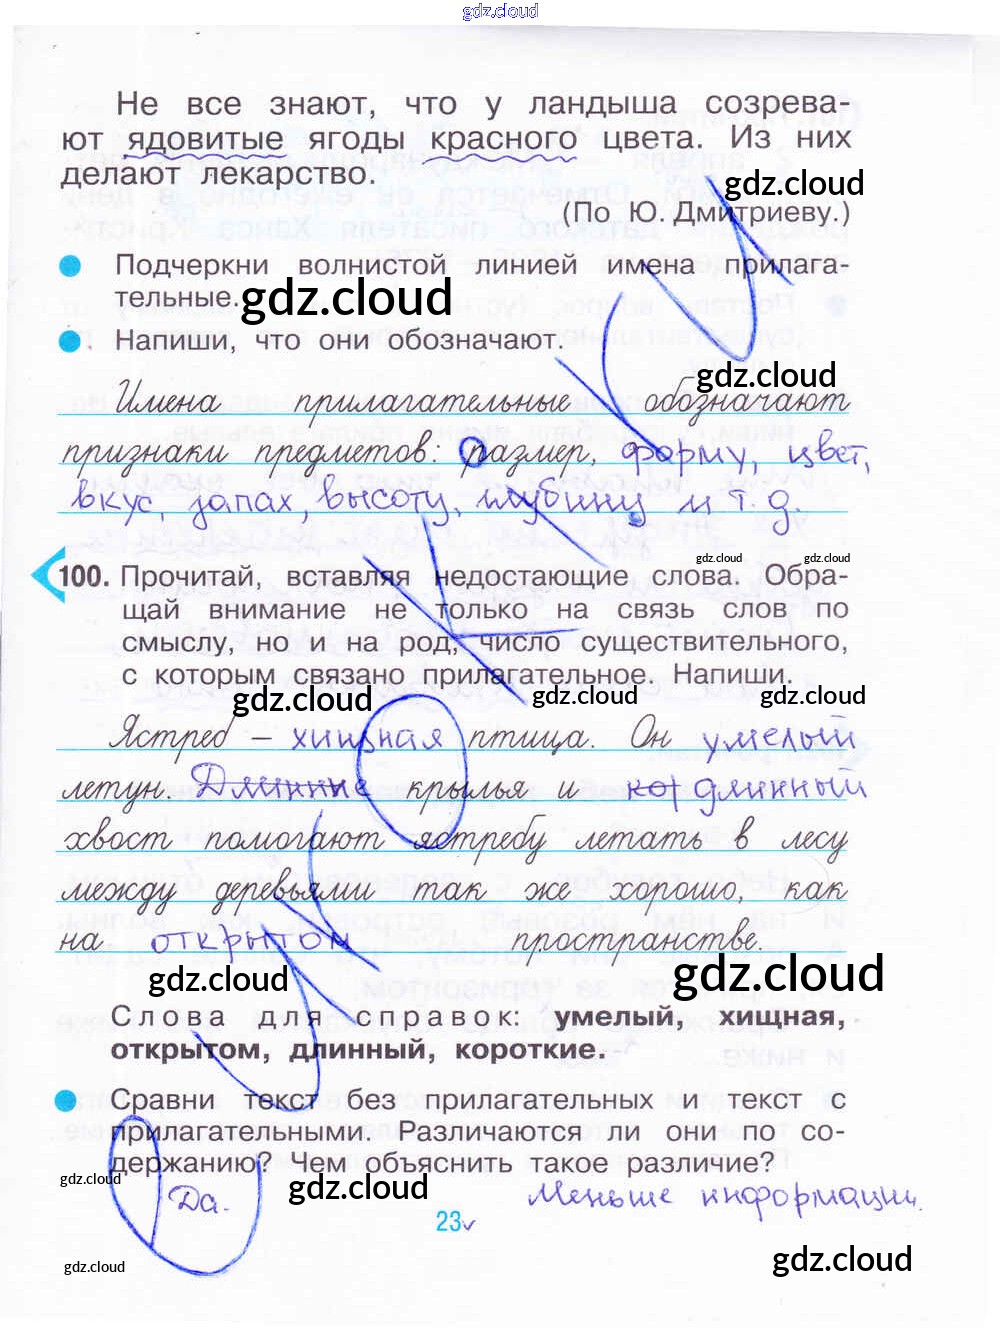 gdz.cloud
Не все знают, что у ландыша созрева-
ют ядовитые ягоды красного цвета. Из них
делают лекарство.
gdz.cloud
(По Ю. Дмитриеву.)
Подчеркни волнистой линией имена прилага-
тельные.
gdz.cloud
Напиши, что они обозначают.
gdz.cloud
Имена прилагательные обозначают
признаки предметов: размер, форму, цвет,
вкус, запах, высоту, глубину и т. д.
gdz.cloud gdz.cloud
100. Прочитай, вставляя недостающие слова. Обра-
щай внимание не только на связь слов по
смыслу, но и на род, число существительного,
с которым связано прилагательное. Напиши.
gdz.cloud gdz.cloud gdz.cloud
Ястреб – хищная птица. Он умелый
летун. Длинные крылья и кор длинный
хвост помогают ястребу летать в лесу
между деревьями так же хорошо, как
на открытом пространстве.
gdz.cloud gdz.cloud
Слова для справок: умелый, хищная,
открытом, длинный, короткие.
Сравни текст без прилагательных и текст с
прилагательными. Различаются ли они по со-
держанию? Чем объяснить такое различие?
gdz.cloud gdz.cloud
Да. Меньше информации.
23
gdz.cloud gdz.cloud